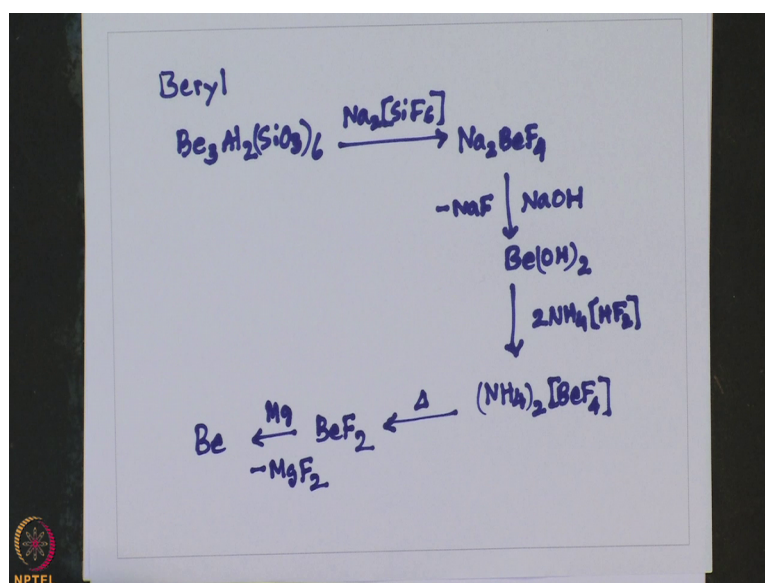 Beryl
Be3Al2(SiO3)6 Na2[SiF6] → Na2BeF4
-NaF ↓ NaOH
Be(OH)2
↓ 2NH4[HF2]
(NH4)2[BeF4]
Be ← Mg -MgF2 BeF2 ← Δ
NPTEL